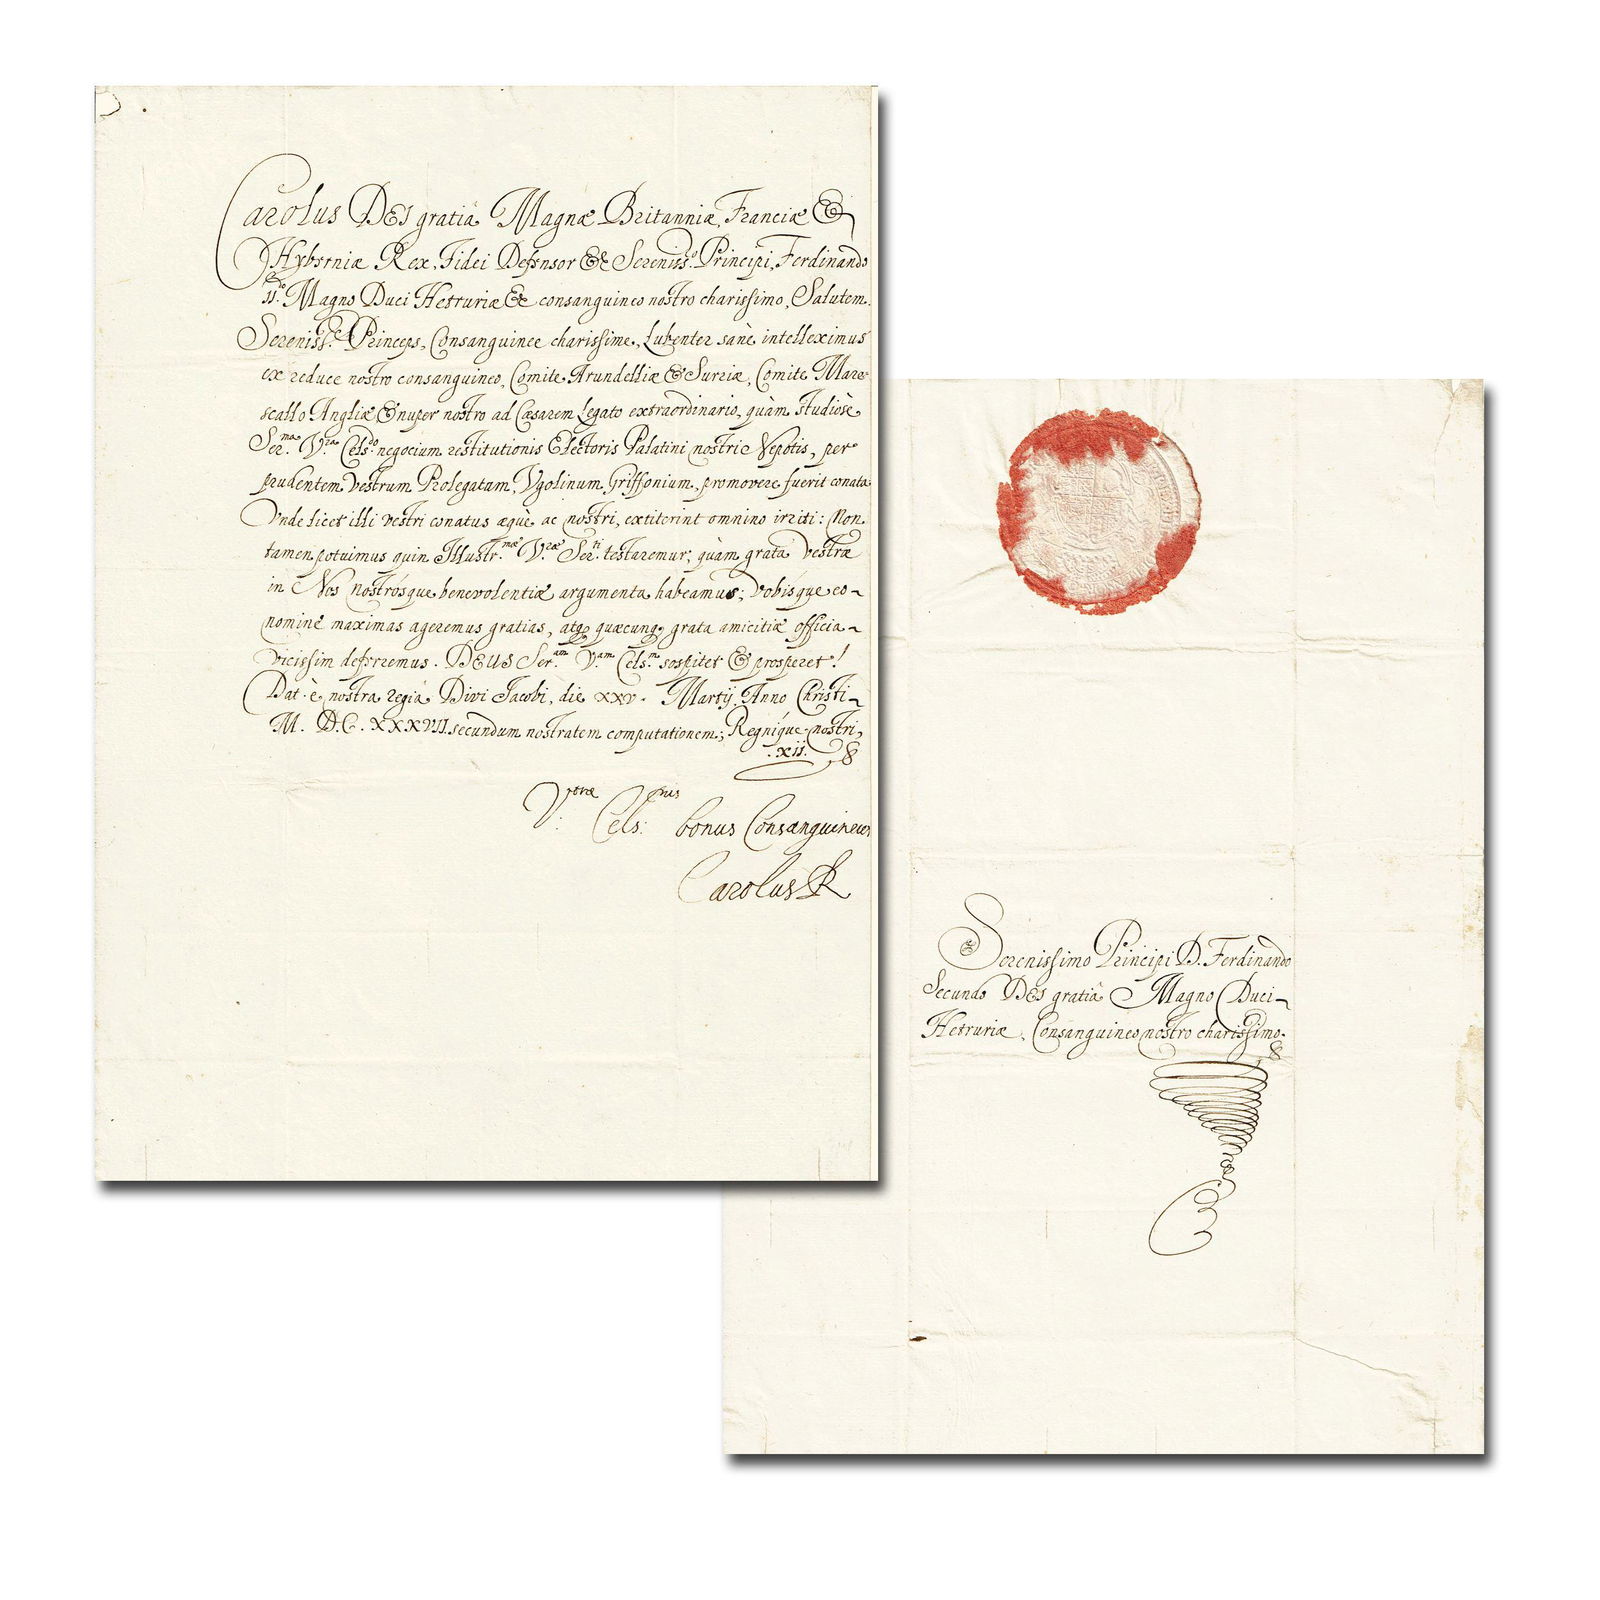 Carolus DEI gratiâ Magnæ Britanniæ, Franciæ &
Hyberniæ Rex, Fidei Defensor &c Sereniss.o Principi, Ferdinando
II.do Magno Duci Hetruriæ &c consanguineo nostro charissimo, Salutem.
Sereniss.e Princeps, Consanguinee charissime, Lubenter sanè intelleximus
ex reduce nostro consanguineo, Comite Arundelliæ & Surriæ, Comite Mare-
scallo Angliæ & nuper nostro ad Cæsarem Legato extraordinario, quàm studiosè
Ser.ma V.ra Cels.do negocium restitutionis Electoris Palatini nostri Nepotis, per
prudentem vestrum Prolegatum, Vgolinum Griffonium, promovere fuerit conata
Vnde licet illi vestri conatus æquè ac nostri, extiterint omnino irriti: Non
tamen potuimus quin Illustr.mæ V.ræ Ser.ti testaremur, quàm grata vestræ
in Nos nostrósque benevolentiæ argumenta habeamus; vobisque eo-
nomine maximas ageremus gratias, atq quæcunq grata amicitiæ officia-
vicissim deferemus. DEUS Ser.am V.am Cels.m sospitet & prosperet!
Dat è nostra regiâ Divi Jacobi, die xxv. Martij Anno Christi-
M. D.C. XXXVII. secundum nostratem computationem; Regnique nostri,
.xii.
V:træ Cels:nis bonus Consanguineus
Carolus R
Serenissimo Principi D. Ferdinando
Secundo DEI gratiâ Magno Duci-
Hetruriæ, Consanguineo nostro charissimo.